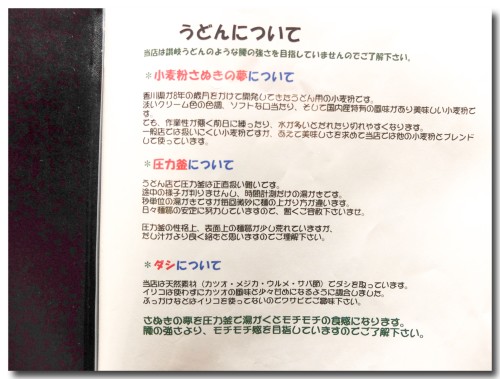 うどんについて
当店は讃岐うどんのような腰の強さを目指していませんのでご了解下さい。
＊小麦粉さぬきの夢について
香川県が8年の歳月をかけて開発してきたうどん用の小麦粉です。
淡いクリーム色の色調、ソフトな口当たり、そして国内産特有の風味があり美味しい小麦粉で
す。
でも、作業性が悪く前日に練ったり、水が多いとだれたり切れやすくなります。
一般店では扱いにくい小麦粉ですが、あえて美味しさを求めて当店では他の小麦粉とブレンド
して使っています。
＊圧力釜について
うどん店で圧力釜は正直扱い難いです。
途中の様子が判りませんし、時間計測だけの湯がきです。
秒単位の湯がきですが毎回微妙に麺の上がり方が違います。
日々麺筋の安定に努力していますので、悪くご容赦下さいませ。
圧力釜の性格上、表面上の麺筋が少し荒れていますが、
だし汁がより良く絡むと思いますのでご理解下さい。
＊ダシについて
当店は天然素材（カツオ・メジカ・ウルメ・サバ節）でダシを取っています。
イリコは使わずにカツオの風味と少々甘めになるように調合しました。
ぶっかけなどはイリコを使ってないのでワサビでご賞味下さい。
さぬきの夢を圧力釜で湯がくとモチモチの食感になります。
腰の強さより、モチモチ感を目指していますのでご了解下さい。